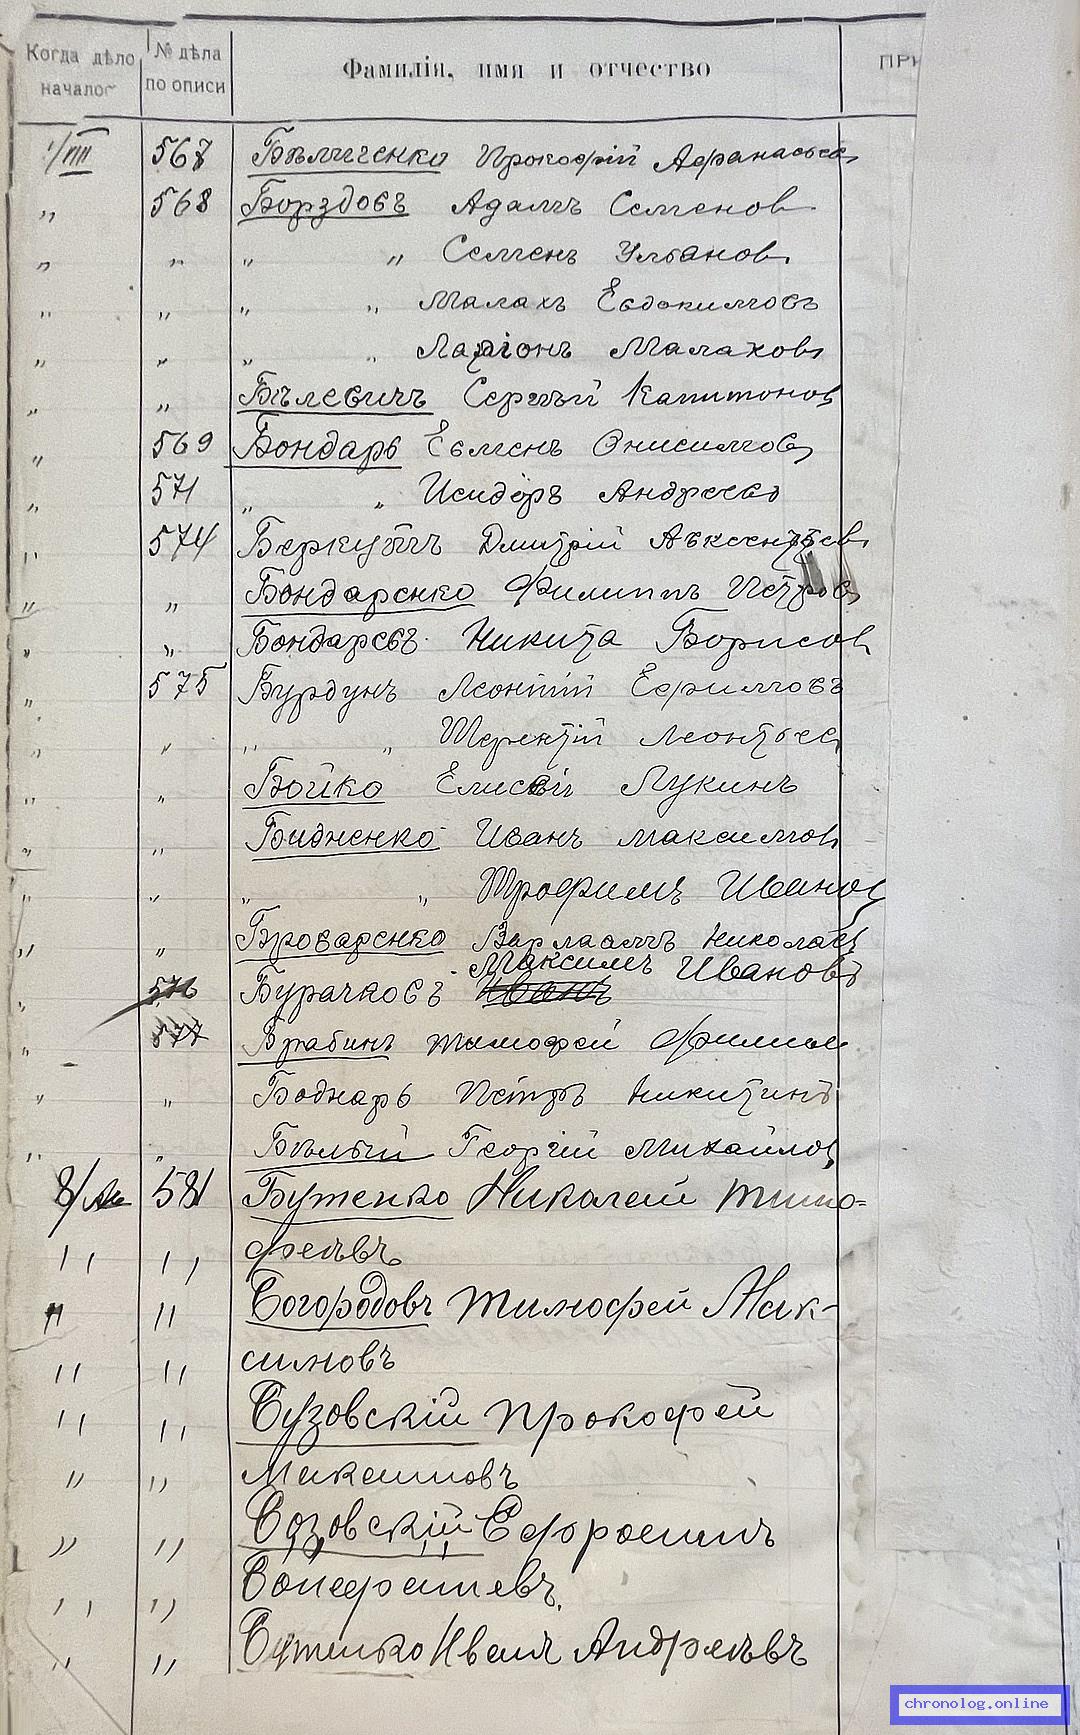 Когда дѣло началос № дѣла по описи Фамилія, имя и отчество ПРИ
1/VIII 567 Бѣличенко Прокофій Афанасьев
" 568 Борздовъ Адамъ Семенов
" " " " Семенъ Ульянов
" " " " Малахъ Евдокимовъ
" " " " Ларіонъ Малахов
" " Бѣлевичъ Сергѣй Капитонов
" 569 Бондарь Евменъ Онисимов
" 571 " " Исидоръ Андреев
" 574 Беркутъ Дмитрій Авксентьев
" " Бондаренко Филиппъ Петров
" " Бондаревъ Никита Борисов
" 575 Бурдунъ Леонтій Ефимовъ
" " " " Терентій Леонтьев
" " Бойко Елисѣй Лукинъ
" " Бидненко Иванъ Максимов
" " " " Трофимъ Иванов
" " Броваренко Варлаамъ Николаев
" 576 Бурачковъ Иванъ Максимъ Ивановъ
" 577 Брабинъ Тимофей Филип
" " Боднарь Петръ Никитинъ
" " Бѣлый Георгій Михайлов
8/ 581 Бутенко Николай Тимо-
" " феевъ
" " Богородовъ Тимофей Мак-
" " симовъ
" " Бузовскій Прокофей
" " Максимовъ
" " Бозовскій Ефросимъ
" "
" " Бутенко Иванъ Андреевъ
chronolog.online